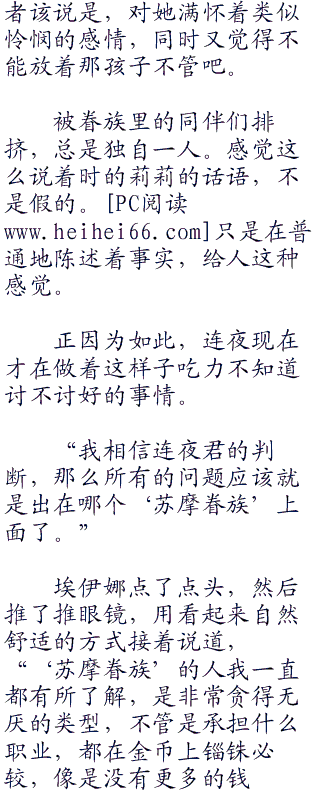 者该说是，对她满怀着类似
怜悯的感情，同时又觉得不
能放着那孩子不管吧。
被眷族里的同伴们排
挤，总是独自一人。感觉这
么说着时的莉莉的话语，不
是假的。[PC阅读
www.heihei66.com]只是在普
通地陈述着事实，给人这种
感觉。
正因为如此，连夜现在
才在做着这样子吃力不知道
讨不讨好的事情。
“我相信连夜君的判
断，那么所有的问题应该就
是出在哪个‘苏摩眷族’上
面了。”
埃伊娜点了点头，然后
推了推眼镜，用看起来自然
舒适的方式接着说道，
“‘苏摩眷族’的人我一直
都有所了解，是非常贪得无
厌的类型，不管是承担什么
职业，都在金币上锱铢必
较，像是没有更多的钱